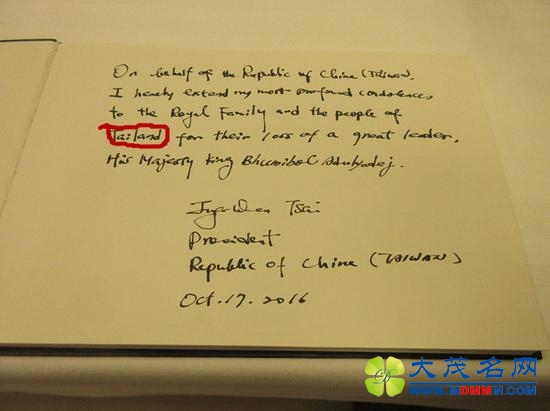 On behalf of the Republic of China (Taiwan),
I hereby extend my most profound condolences
to the Royal Family and the people of
Tailand for their loss of a great leader,
His Majesty King Bhumibol Adulyadej.
Ing-wen Tsai
President
Republic of China (TAIWAN)
Oct. 17. 2016
大茂名网
WWW.MDMMM.COM